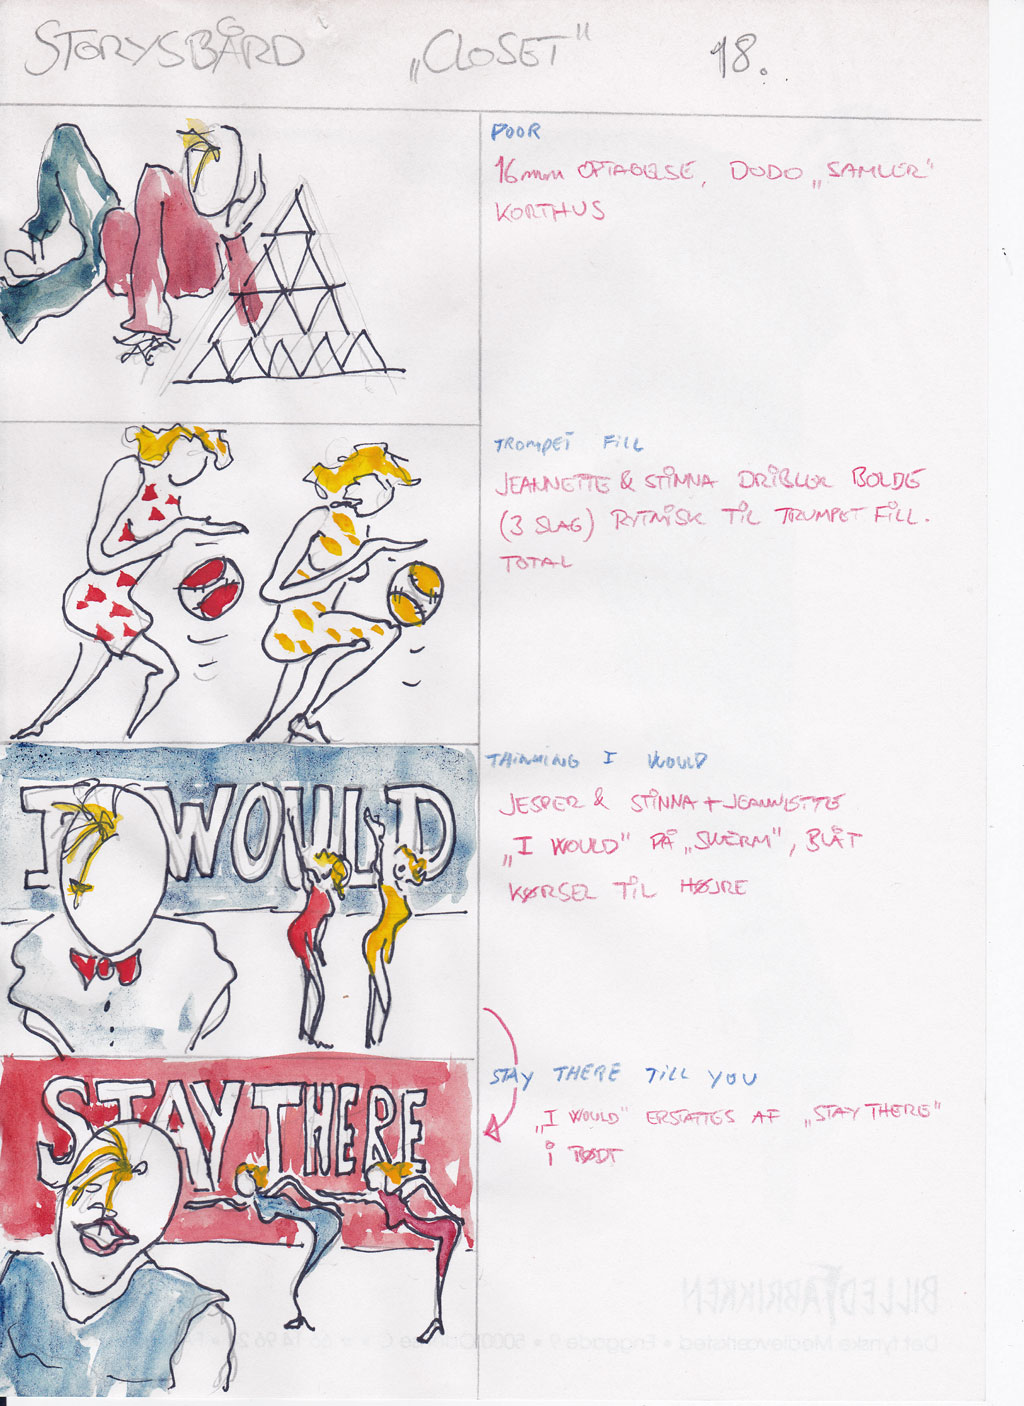 STORYSBÅRD "CLOSET" 18.
DOOR
16mm OPTAGELSE, DODO „SAMLER"
KORTHUS
TROMPET FILL
JEANNETTE & STINNA DRIBLER BOLDE
(3 SLAG) RYTMISK TIL TRUMPET FILL.
TOTAL
I WOULD
THINKING I WOULD
JESPER & STINNA + JEANNETTE
„I WOULD" PÅ „SKÆRM", BLÅT
KØRSEL TIL HØJRE
STAY THERE
STAY THERE TILL YOU
„I WOULD" ERSTATTES AF „STAY THERE"
I RØDT
BILLEDFABRIKKEN
Det fynske Medieværksted • Enggade 9 • 5000 Odense C